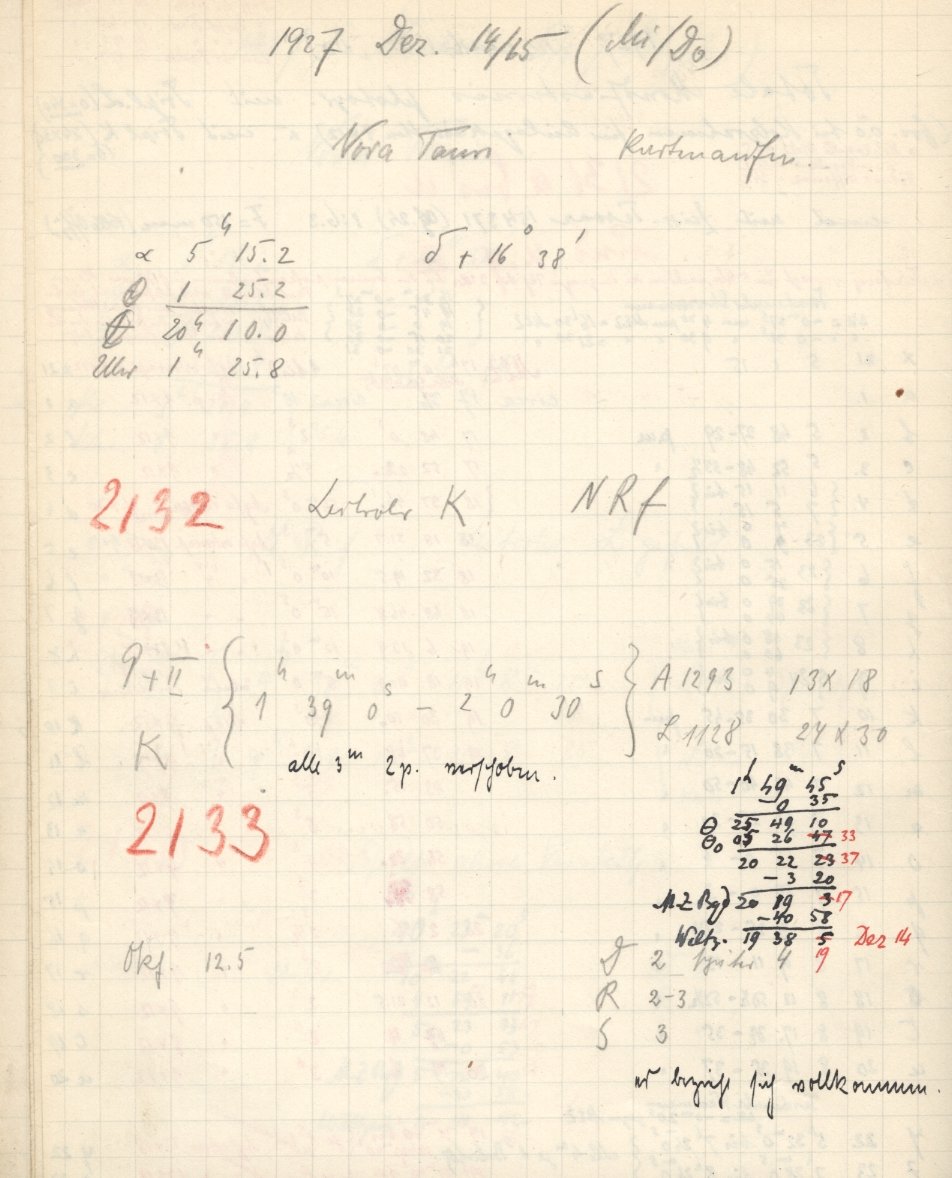 1927 Dez. 14/15 (Mi/Do)
Nova Tauri
α 5ʰ 15.2 δ + 16° 38'
1 25.2
t 20ʰ 10.0
Uhr 1ʰ 25.8
2132 Leitrohr K NRf
P+II
K
1ʰ 39ᵐ 0ˢ – 2ʰ 0ᵐ 30ˢ
A 1293 13X18
L 1128 24X30
alle 3ᵐ 2p. verschoben.
2133
1ʰ 49ᵐ 45ˢ
0 35
Θ 25 49 10
Θ₀ 05 26 47 33
20 22 23 37
– 3 20
M.Z. Bgd 20 19 3 17
– 40 58
Weltz. 19 38 5 Dez 14
19
Okf 12.5
D 2 später 4
R 2-3
S 3
es bezieht sich vollkommen.